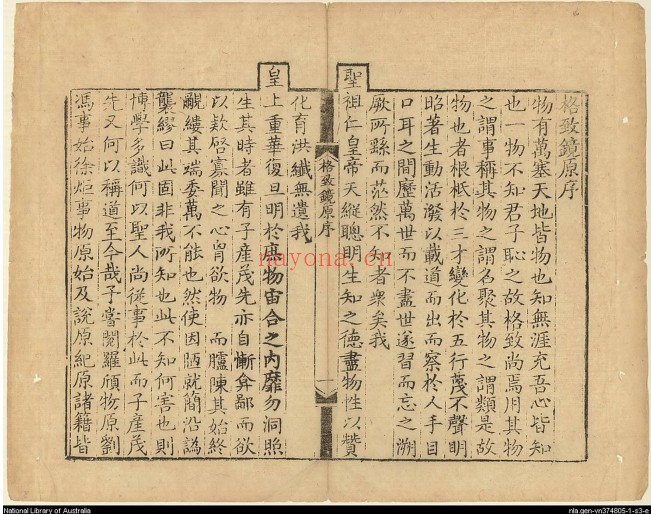 格致鏡原序
物有萬塞天地皆物也知無涯充吾心皆知
也一物不知君子恥之故格致尚焉用其物
之謂事稱其物之謂名聚其物之謂類是故
物也者根柢於三才變化於五行蔑不聲明
昭著生動活潑以載道而出而察於人手目
口耳之間歷萬世而不盡世遂習而忘之溯
厥所繇而茫然不知者衆矣我
聖祖仁皇帝天縱聰明生知之德盡物性以贊
格致鏡原序
一
化育洪纖無遺我
皇上重華復旦明於庶物宙合之內靡勿洞照
生其時者雖有子產茂先亦自慚弇鄙而欲
以欵啓寡聞之心胷欲物 而臚陳其始終
覼縷其瑞委萬不能也然使因陋就簡沿譌
襲繆曰此固非我所知也此不知何害也則
博學多識何以聖人尚從事於此而子產茂
先又何以稱道至今哉予嘗閱羅頎物原劉
馮事始徐炬事物原始及說原紀原諸籍皆
nayona.cn
National Library of Australia
nla.gen-vn374805-1-s3-e